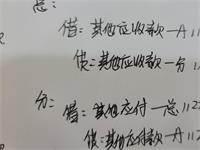 总:
借:其他应收款—A 11
贷:其他应收款—分 1
分:借:其他应付—总 1122
贷:其他应付款—A 112